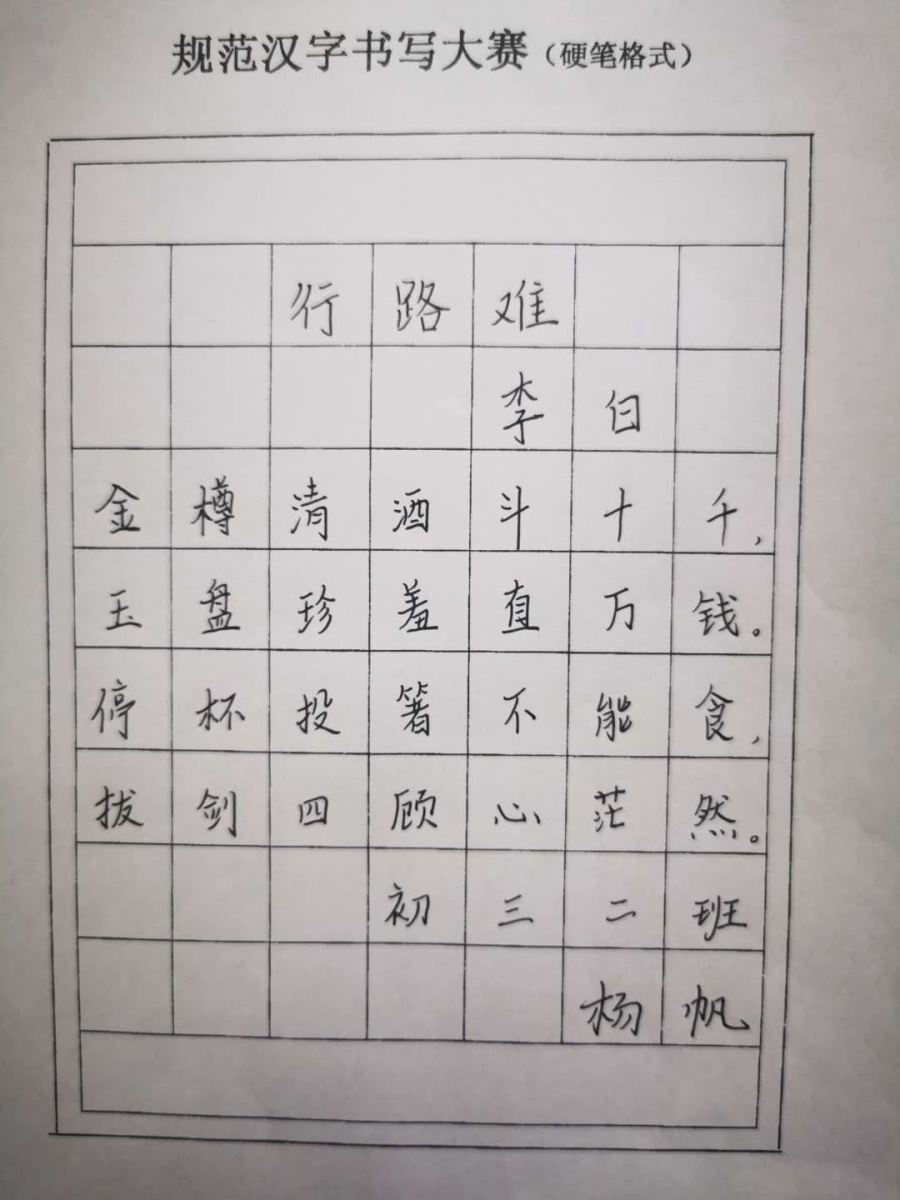 规范汉字书写大赛（硬笔格式）
行路难
李白
金樽清酒斗十千，
玉盘珍羞直万钱。
停杯投箸不能食，
拔剑四顾心茫然。
初三二班
杨帆